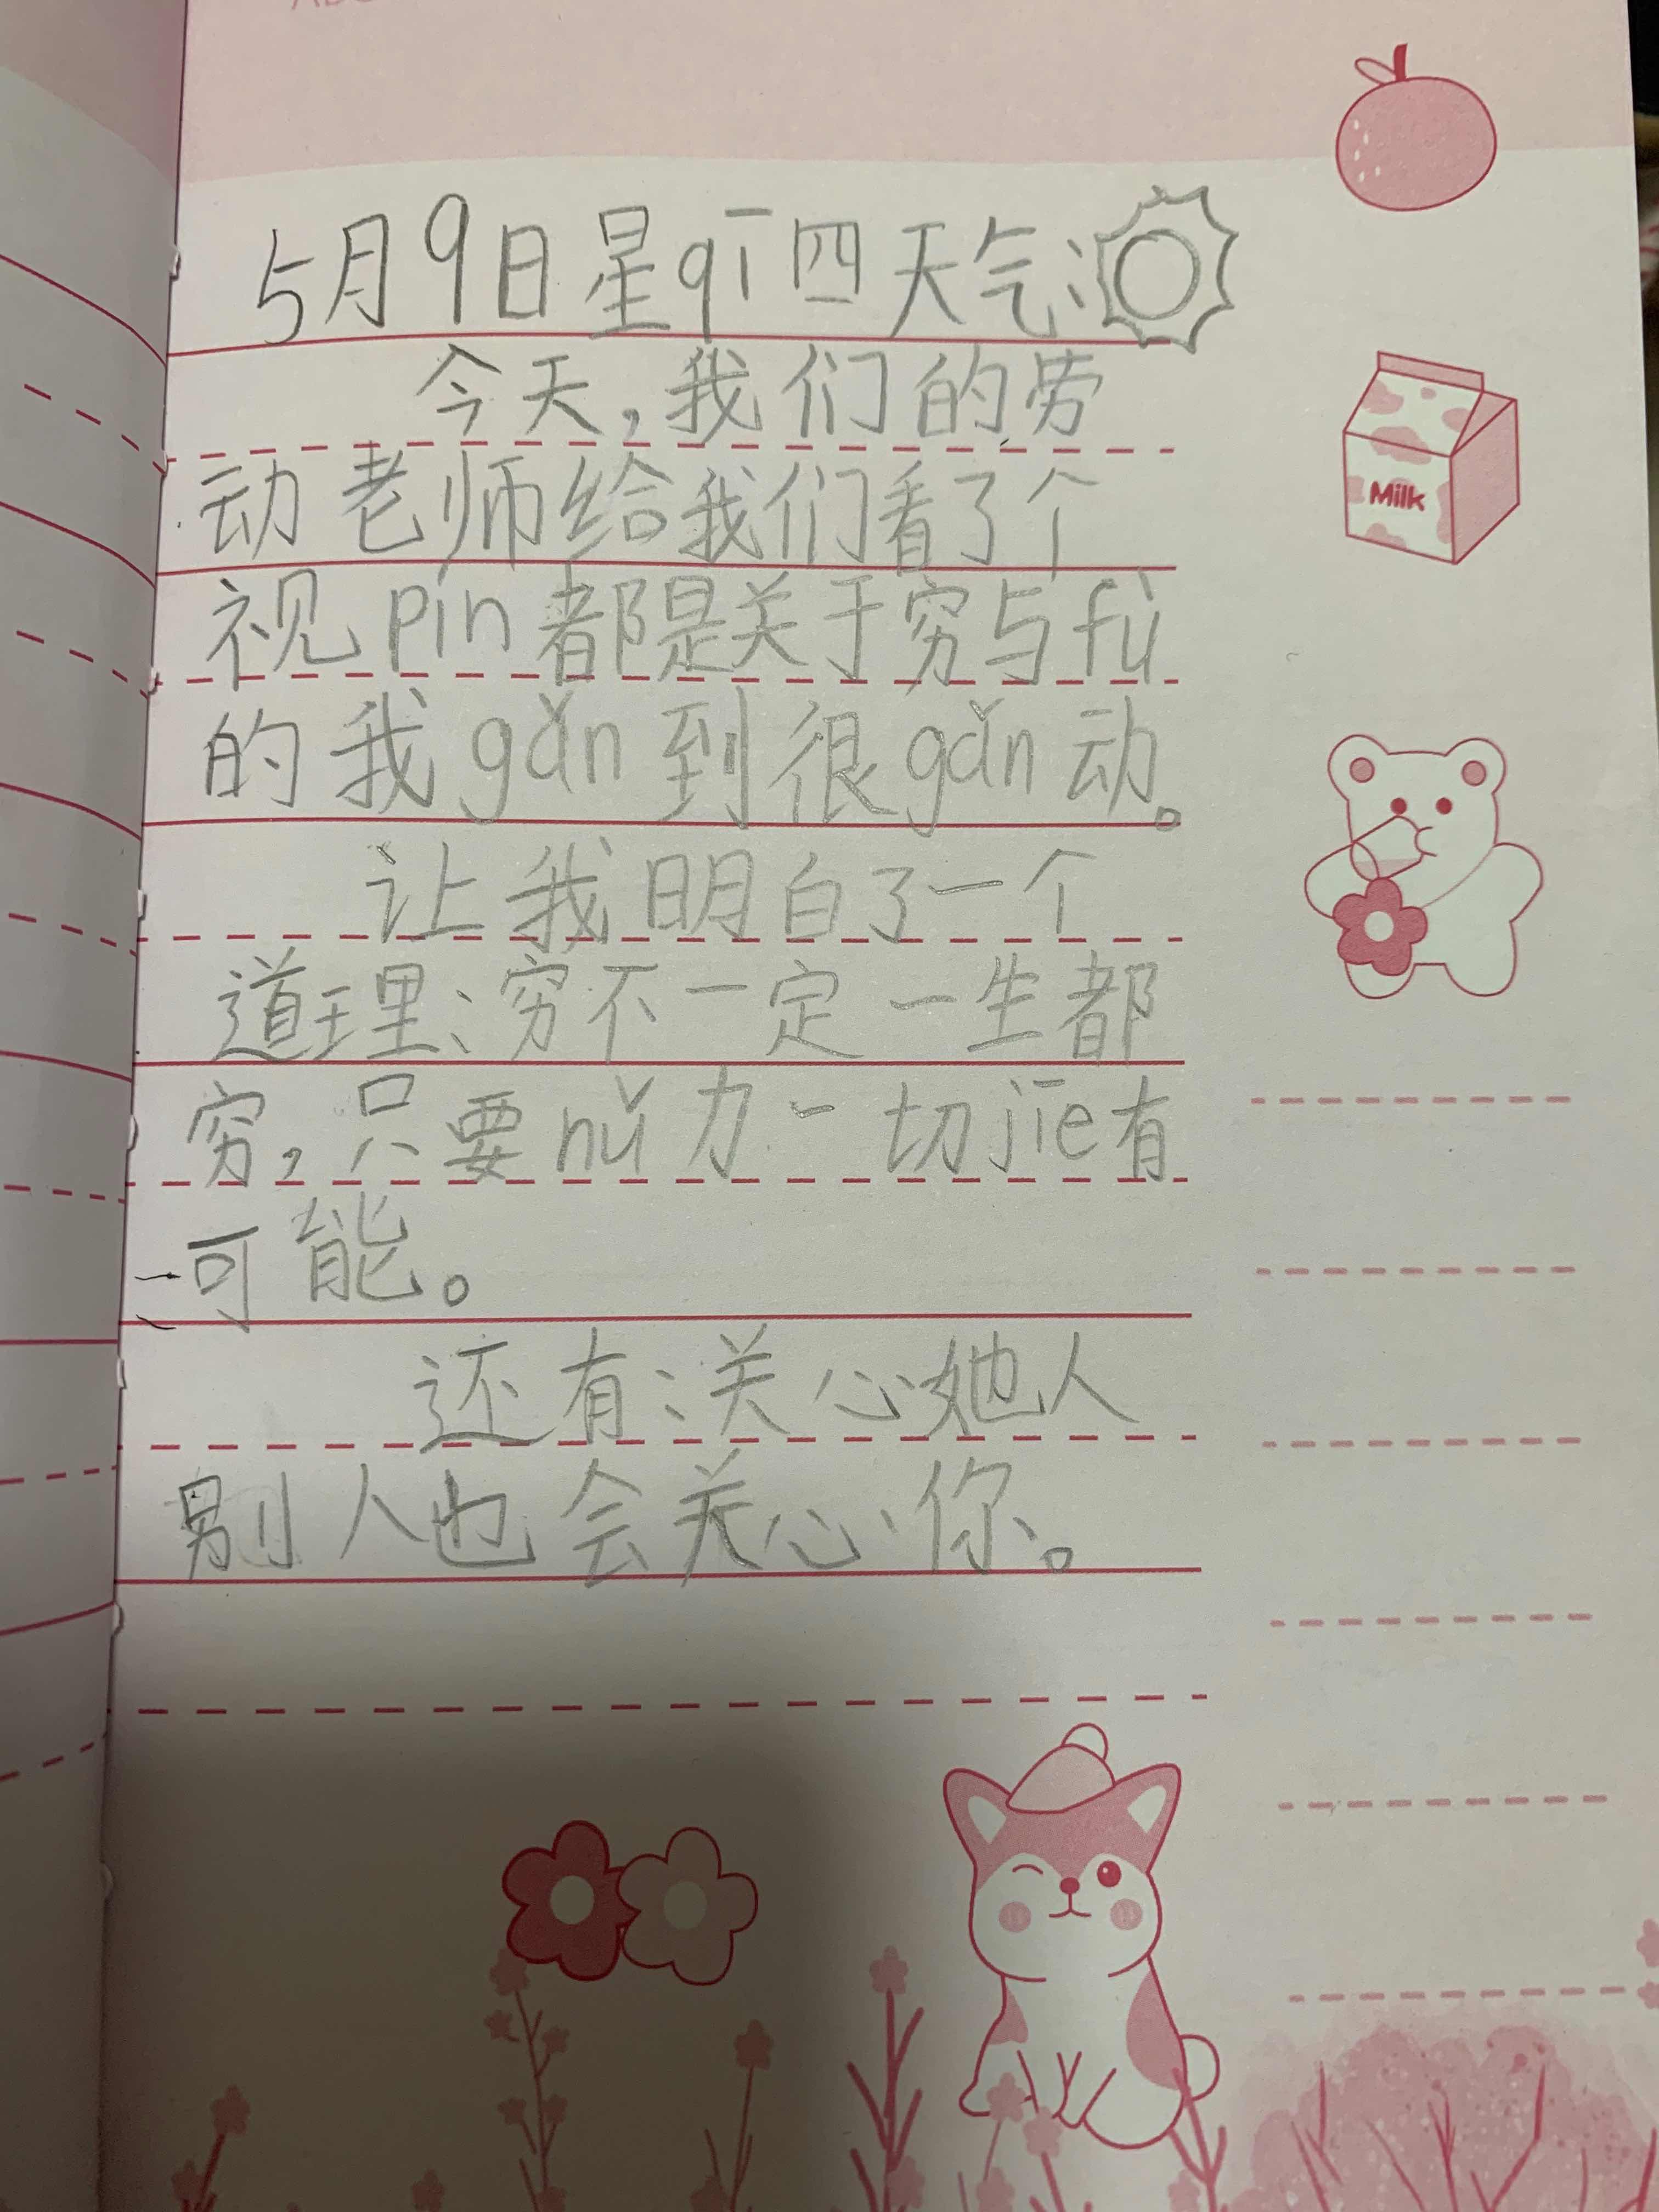 5月9日星qī四天气:
今天,我们的劳
动老师给我们看了个
视pín都是关于穷与fù
的我gǎn到很gǎn动。
让我明白了一个
道理:穷不一定一生都
穷,只要nǔ力一切jiē有
可能。
还有:关心她人
别人也会关心你。
Milk